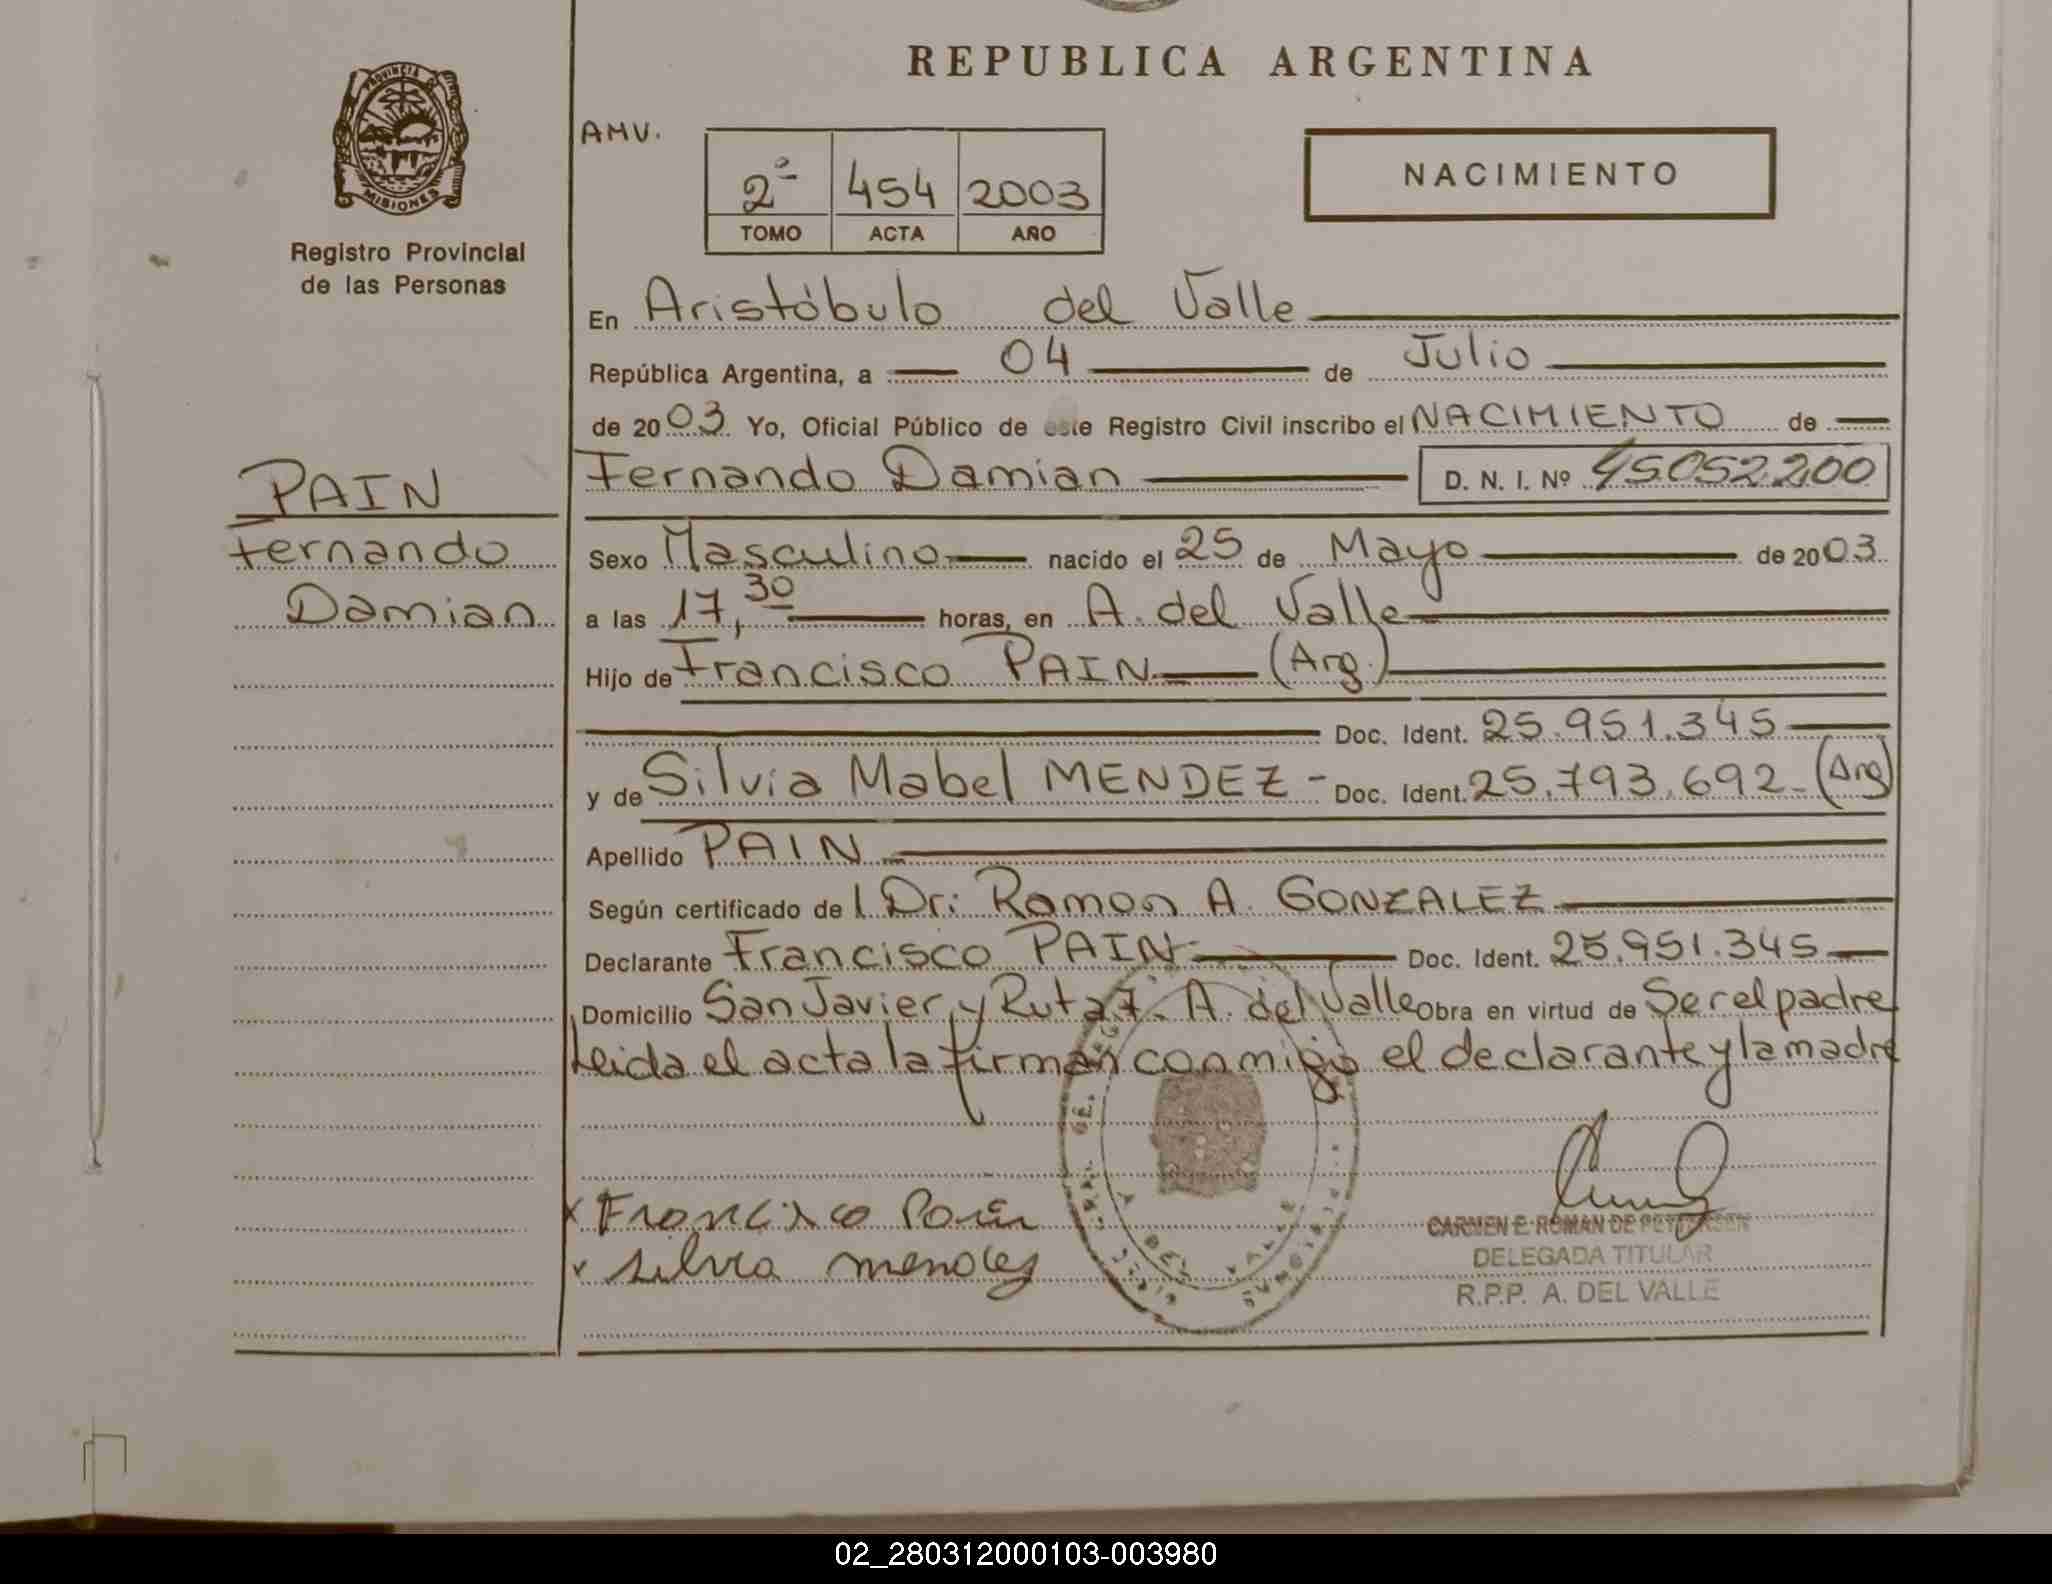 REPUBLICA ARGENTINA
PROVINCIA DE
MISIONES
Registro Provincial
de las Personas
AMV.
2º 454 2003
TOMO ACTA AÑO
NACIMIENTO
En Aristóbulo del Valle
República Argentina, a 04 de Julio
de 2003 Yo, Oficial Público de este Registro Civil inscribo el NACIMIENTO de
PAIN
Fernando
Damian
Fernando Damian D. N. I. Nº 45.052.200
Sexo Masculino nacido el 25 de Mayo de 2003
a las 17,30 horas, en A. del Valle
Hijo de Francisco PAIN (Arg.)
Doc. Ident. 25.951.345
y de Silvia Mabel MENDEZ - Doc. Ident. 25.793.692 - (Arg)
Apellido PAIN
Según certificado de l Dr: Ramon A. GONZALEZ
Declarante Francisco PAIN Doc. Ident. 25.951.345
Domicilio San Javier y Ruta 7. A. del Valle Obra en virtud de Ser el padre
Leida el acta la firman conmigo el declarante y la madre
x Francisco Pain
silvia mendes
A DEL VALLE
MISIONES
CARMEN E. ROMAN DE PETTERSEN
DELEGADA TITULAR
R.P.P. A. DEL VALLE
02_280312000103-003980